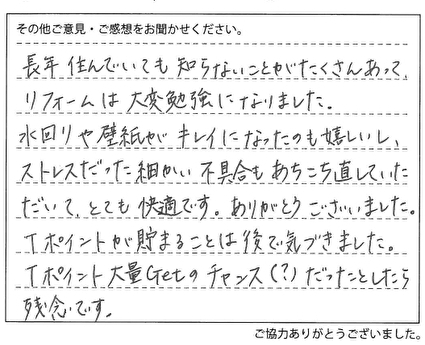 その他ご意見・ご感想をお聞かせください。
長年住んでいても知らないことがたくさんあって、
リフォームは大変勉強になりました。
水回りや壁紙がキレイになったのも嬉しいし、
ストレスだった細かい不具合もあちこち直していた
だいて、とても快適です。ありがとうございました。
Tポイントが貯まることは後で気づきました。
Tポイント大量Getのチャンス(?)だったとしたら
残念です。
ご協力ありがとうございました。